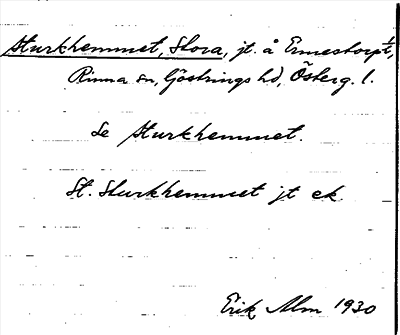 Sturkhemmet, Stora, jt. å Ernestorp 1/1,
Rinna sn, Göstrings hd, Österg. l.
Se Sturkhemmet.
St. Sturkhemmet jt ek
Erik Alm 1930